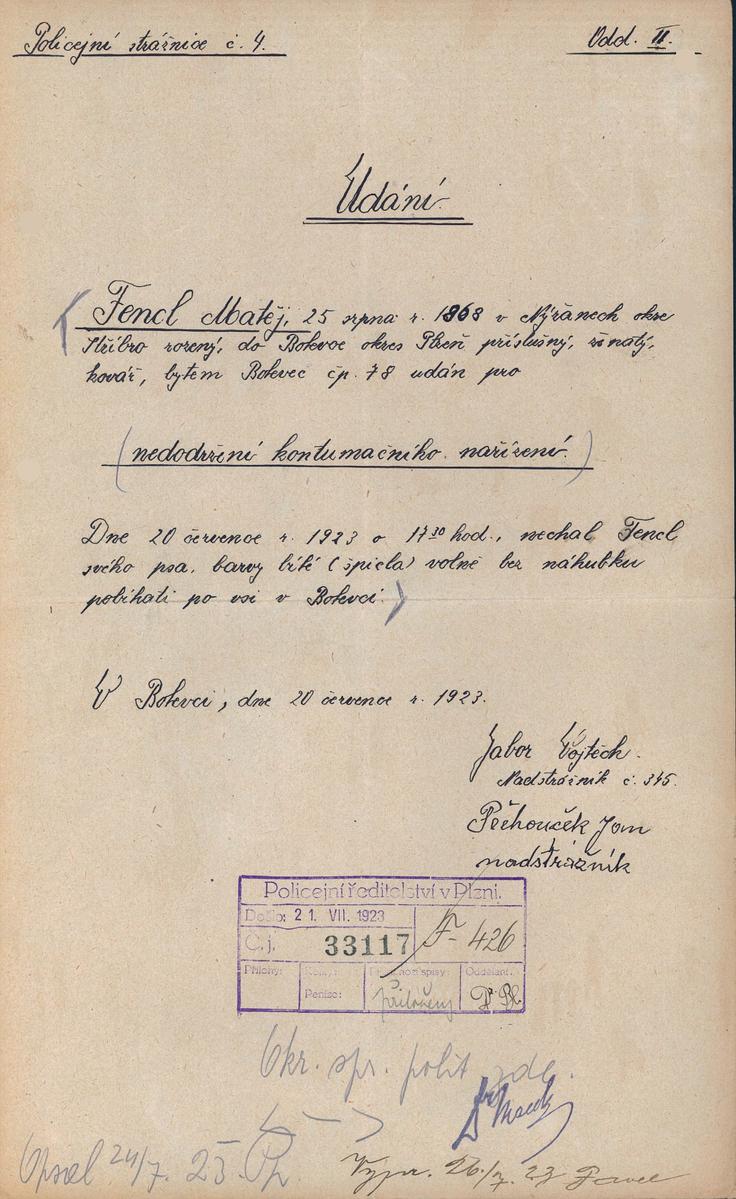 Policejní strážnice č. 4.
Odd. II.
Udání.
Fencl Matěj, 25 srpna r. 1868 v Nýřanech okre
Stříbro rozený, do Bolevce okres Plzeň příslušný, ženatý,
kovář, bytem Bolevec čp. 78 udán pro
(nedodržení kontumačního nařízení.)
Dne 20 července r. 1923 o 17 30 hod., nechal Fencl
svého psa, barvy bílé (špicla) volně bez náhubku
pobíhati po vsi v Bolevci.
V Bolevci, dne 20 července r. 1923.
Jabor Vojtěch.
Nadstrážník č. 345.
Pěchouček Jan
nadstrážník
Policejní ředitelství v Plzni.
Došlo: 21. VII. 1923
Č. j. 33117 F- 426
Přílohy: Kolky: Předchozí spisy: Oddělení:
Peníze: přiloženy
Okr. spr. polit zde.
Opsal 24/7. 23
Vypr. 26/7. 23 Pavel